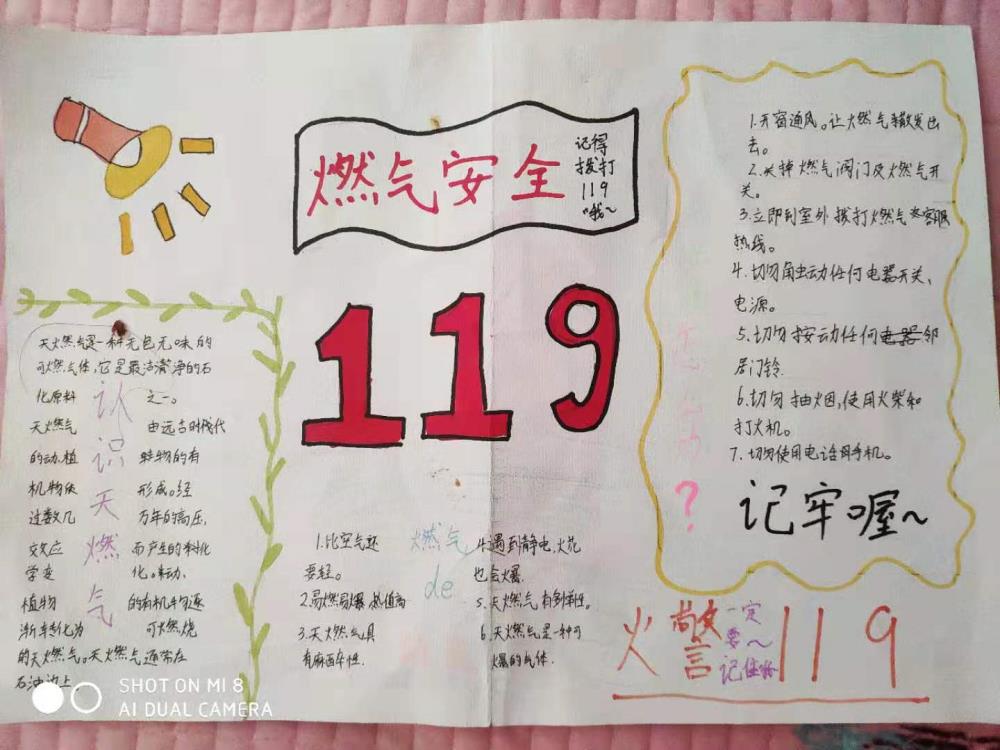 燃气安全
记得
拨打
119
哦~
119
天燃气是一种无色无味的
可燃气体,它是最洁清净的石
化原料 之一。
天燃气 由远古时代
的动.植 物的有
机物质 形成。经
过数几 万年的高压,
而产生的
学变 化。
植物 的有机物逐
渐转化为 可燃烧
的天燃气。天燃气通常在
石油边上。
认
识
天
燃
气
燃气
de
1.比空气还
要轻。
2.易燃易爆 热值高
3.天燃气具
有麻醉性.
4.遇到静电.火花
也会爆.
5.天燃气有多样性。
6.天燃气是一种可
爆的气体.
1.开窗通风。让燃气散发出
去。
2.关掉燃气阀门及燃气开
关。
3.立即到室外拨打燃气客服
热线。
4.切勿触动任何电器开关、
电源。
5.切勿按动任何电器邻
居门铃.
6.切勿抽烟,使用火柴和
打火机。
7.切勿使用电话手机。
?
记牢喔~
火警119
一定
要~
记住好
SHOT ON MI 8
AI DUAL CAMERA